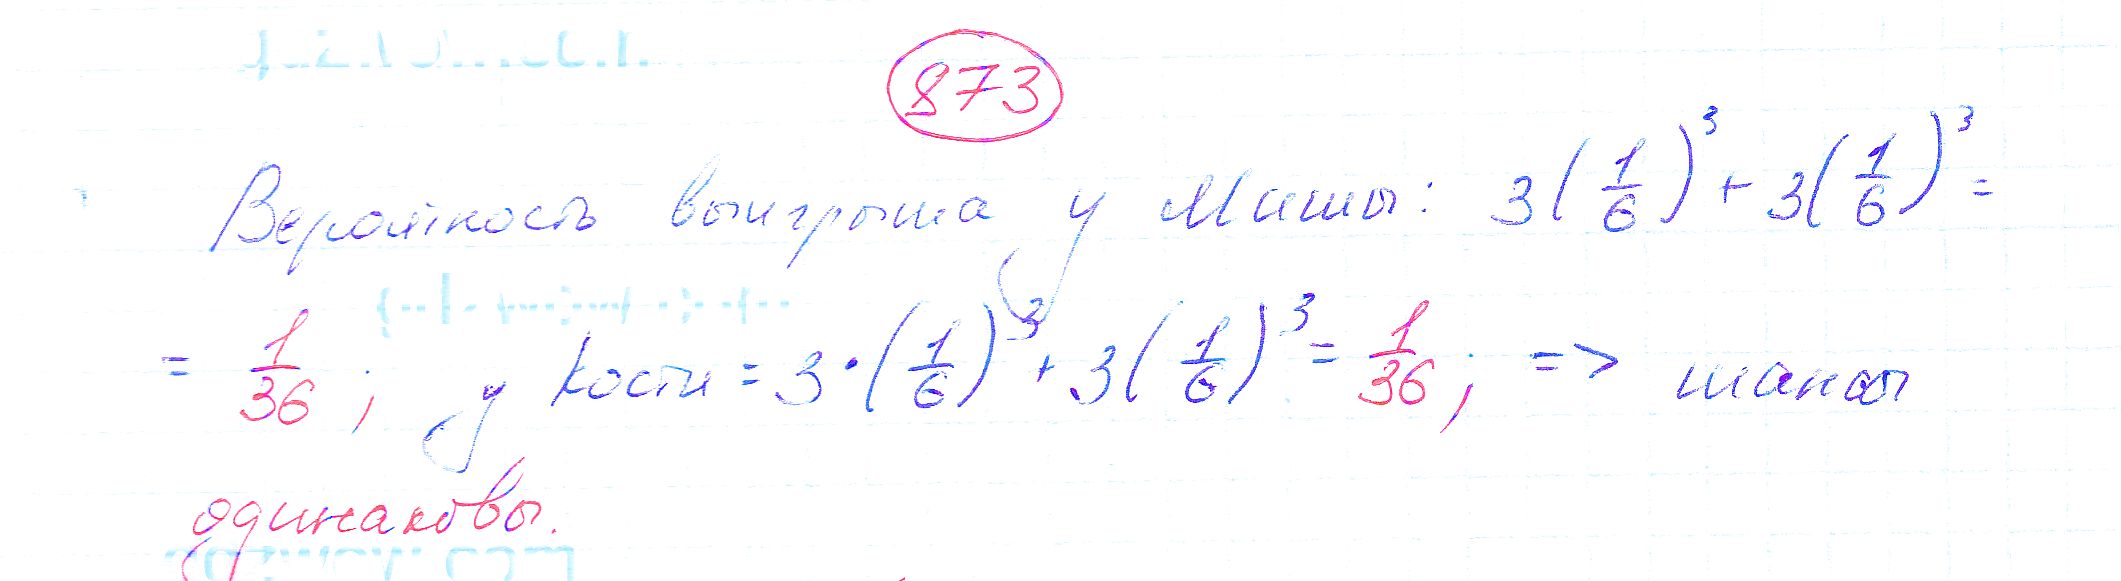 873
Вероятность выигрыша у Миши: 3(1/6)^3 + 3(1/6)^3 =
= 1/36; у Кости = 3·(1/6)^3 + 3(1/6)^3 = 1/36; => шансы
одинаковы.